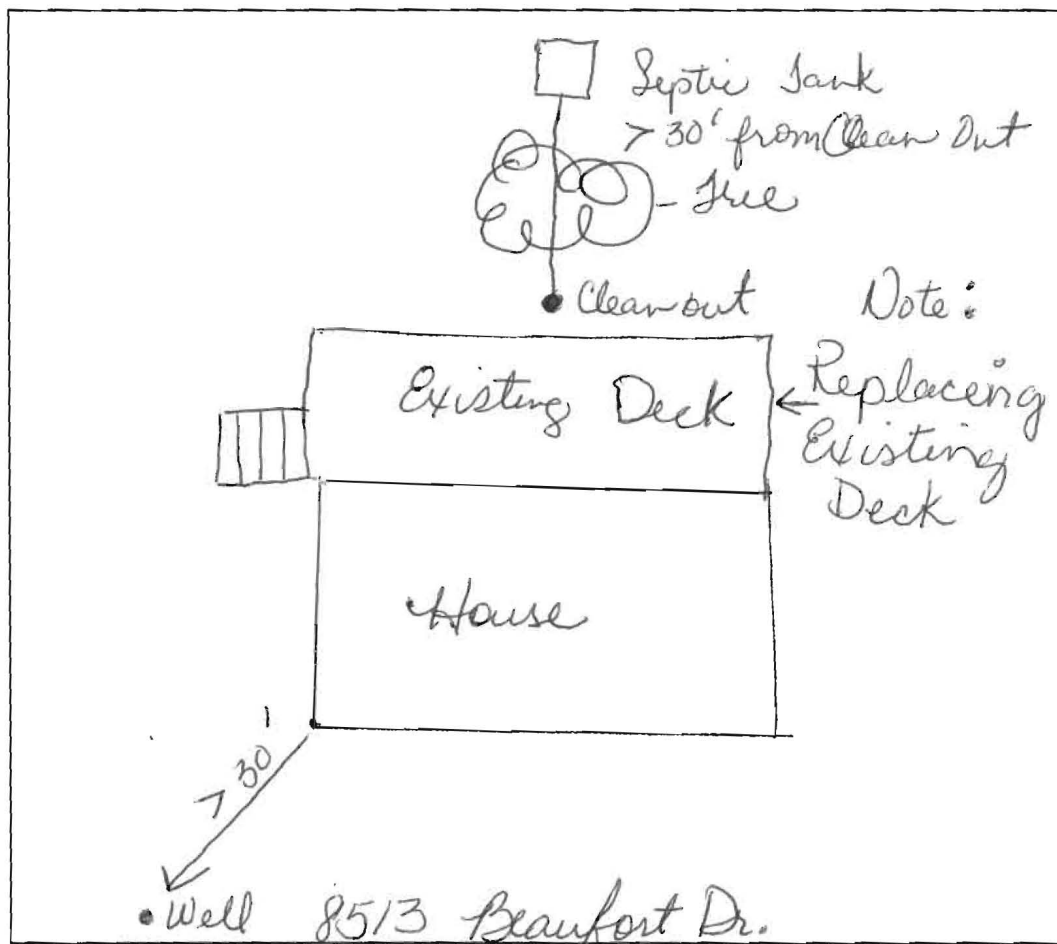 Septic Tank
> 30' from Clean Out
- Tree
Cleanout
Note:
Replacing
Existing
Deck
Existing Deck
House
> 30'
Well 8513 Beaufort Dr.